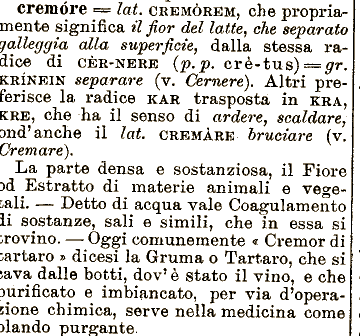 cremóre = lat. CREMÒREM, che propria-
mente significa il fior del latte, che separato
galleggia alla superficie, dalla stessa ra-
dice di CÈR-NERE (p. p. crè-tus) = gr.
KRÍNEIN separare (v. Cernere). Altri pre-
ferisce la radice KAR trasposta in KRA,
KRE, che ha il senso di ardere, scaldare,
ond'anche il lat. CREMÀRE bruciare (v.
Cremare).
La parte densa e sostanziosa, il Fiore
od Estratto di materie animali e vege-
tali. — Detto di acqua vale Coagulamento
di sostanze, sali e simili, che in essa si
trovino. — Oggi comunemente « Cremor di
tartaro » dicesi la Gruma o Tartaro, che si
cava dalle botti, dov'è stato il vino, e che
purificato e imbiancato, per via d'opera-
zione chimica, serve nella medicina come
blando purgante.